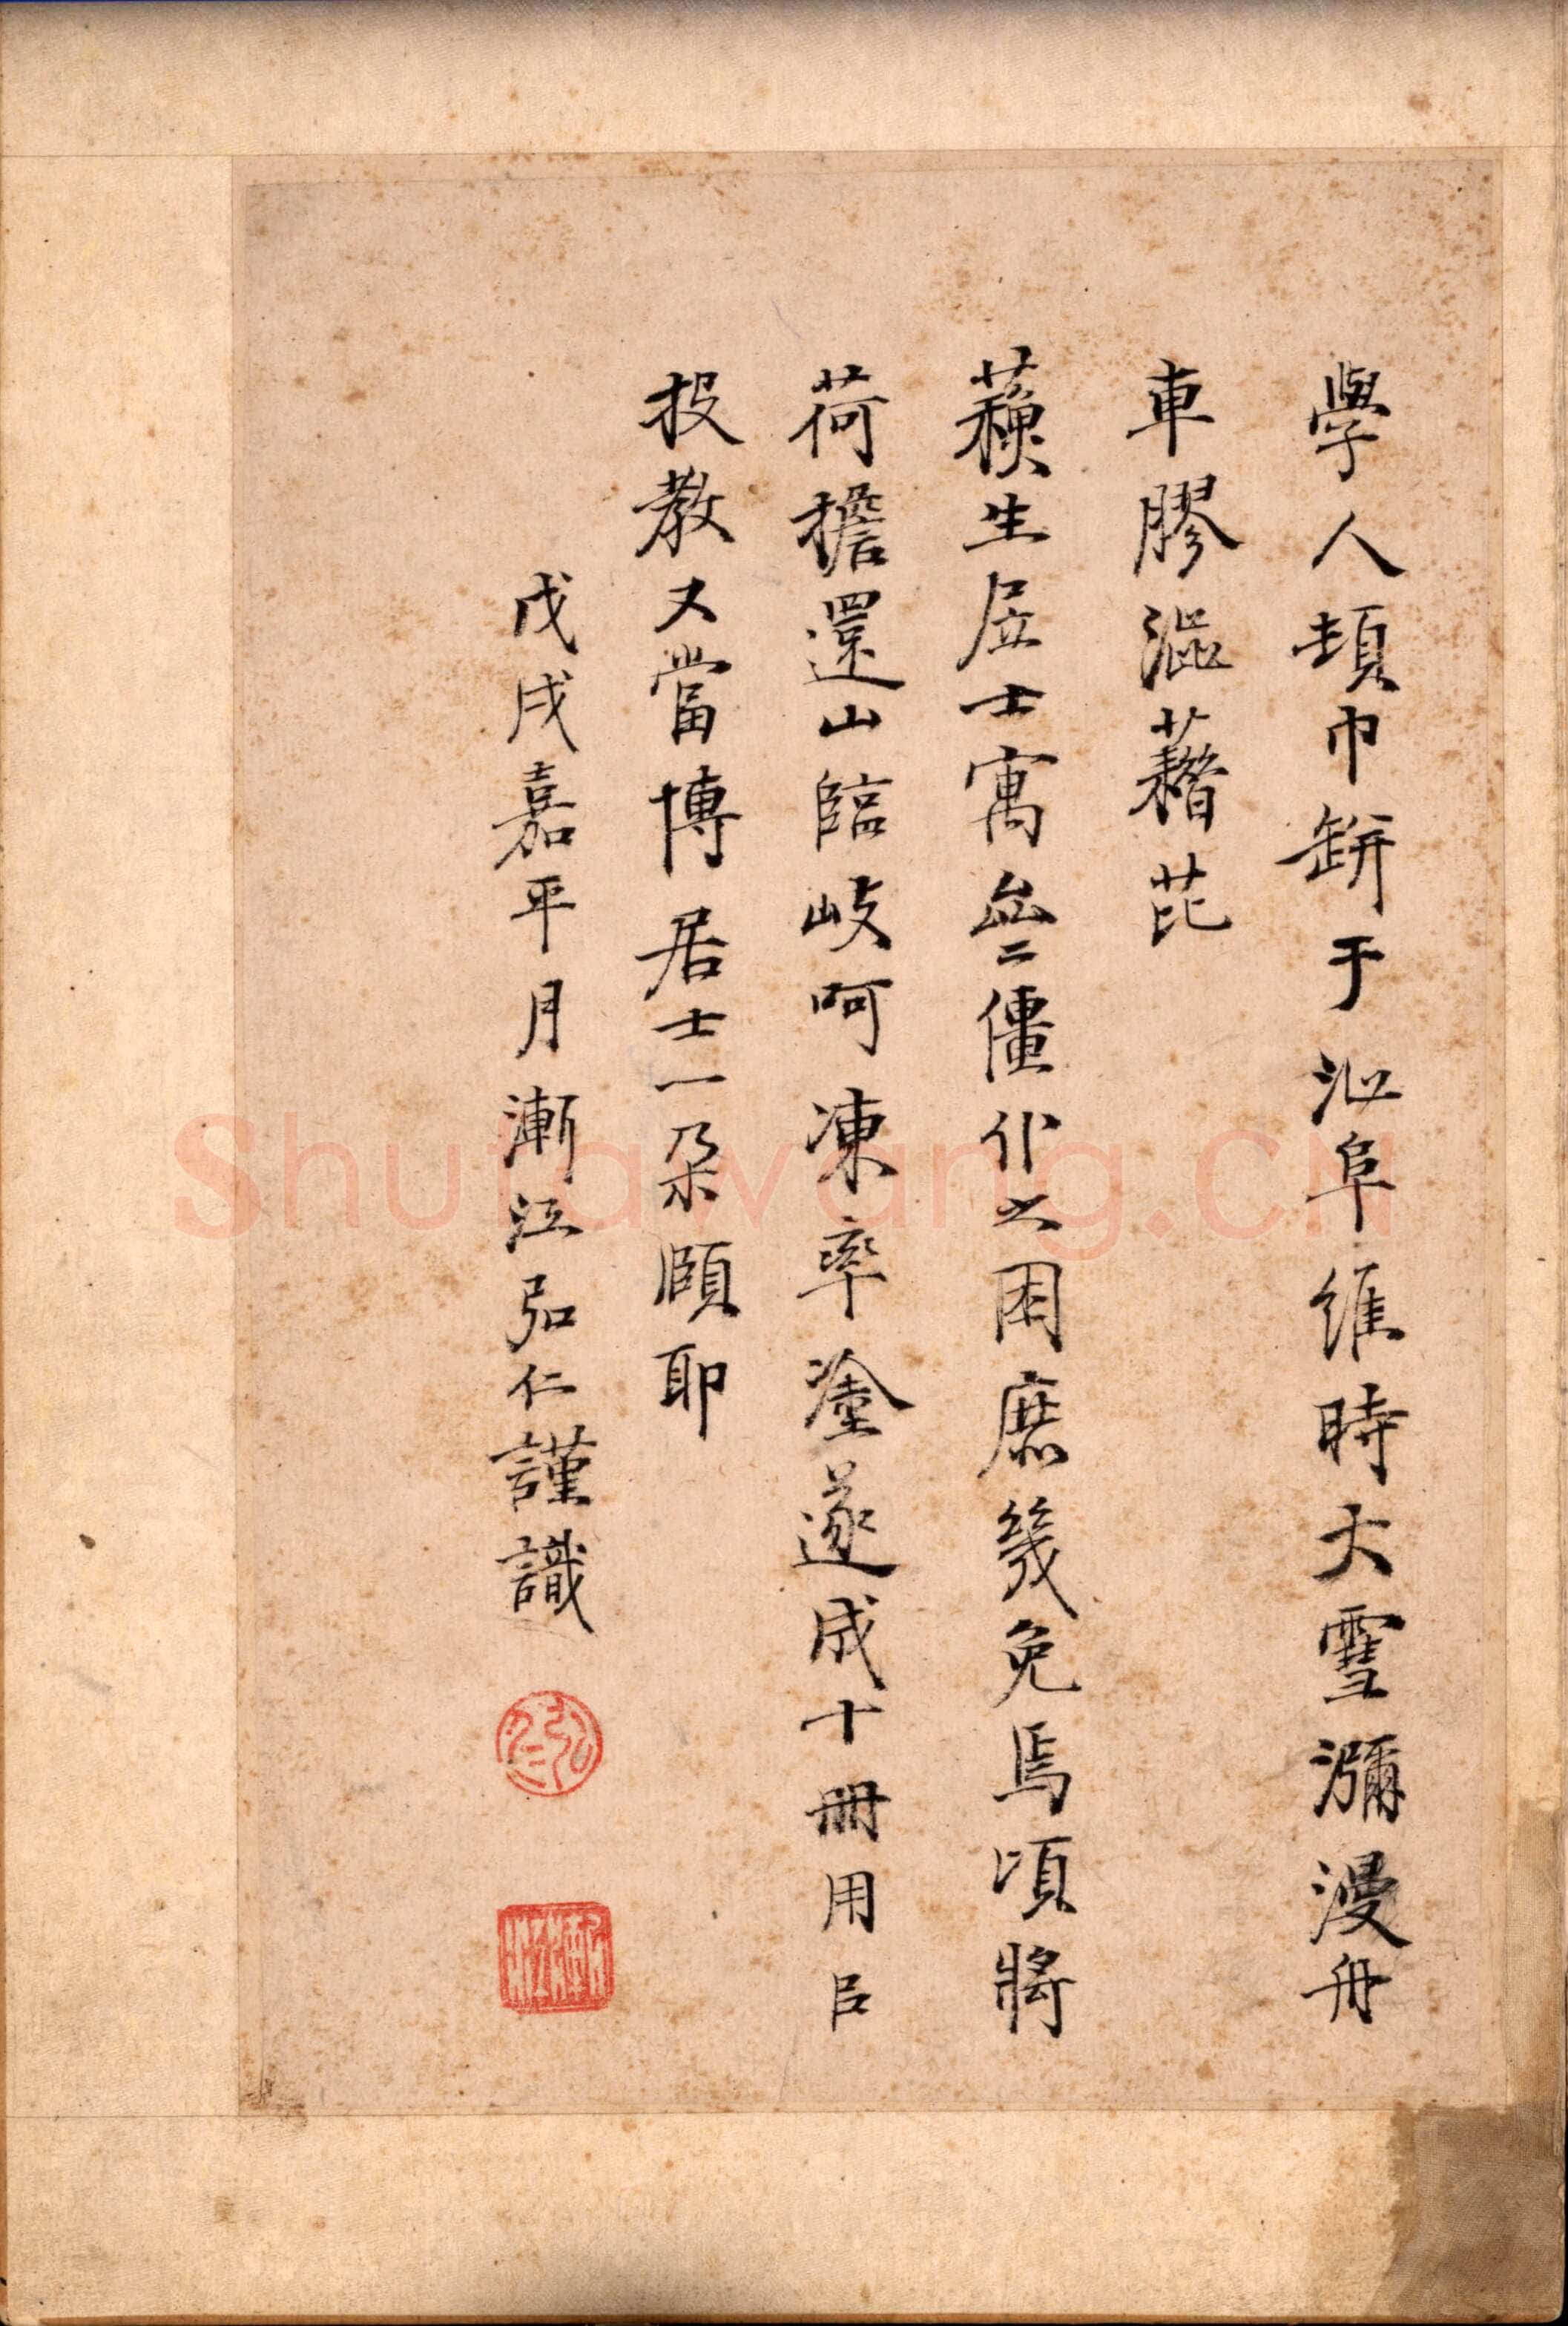 學人頓巾缾于沁阜維時大雪瀰漫舟
車膠澁藉芘
生居士寓無僵仆之困庶幾免焉頃將
荷擔還山臨岐呵凍率塗遂成十冊用㠯
投教又當博居士一朶頤耶
戊戌嘉平月漸江弘仁謹識
Shufawang.CN